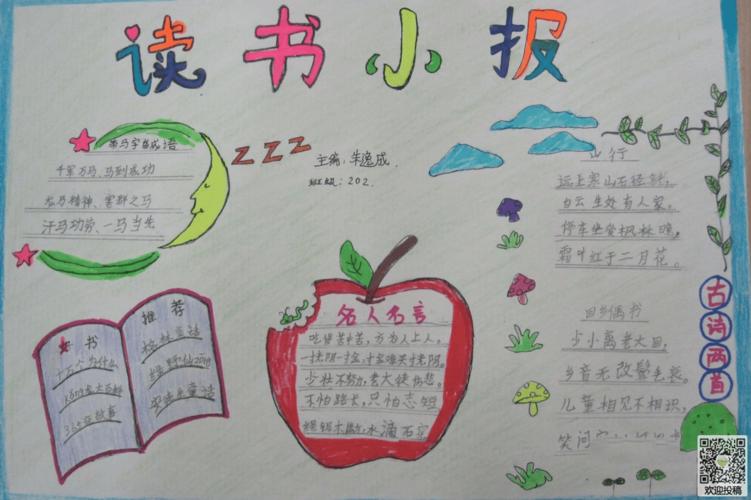 读书小报
带马字成语
千军万马、马到成功
龙马精神、害群之马
汗马功劳、一马当先
ZZZ
主编:朱逸成
班级:202.
好书
十万个为什么
推荐
格林童话
绿野仙踪
安徒生童话
名人名言
吃得苦中苦,方为人上人。
少壮不努力,老大徒伤悲。
不怕路长,只怕志短
水滴石穿
山行
远上寒山石径斜,
白云生处有人家。
停车坐爱枫林晚,
霜叶红于二月花。
古诗两首
回乡偶书
少小离老大回,
乡音无改鬓毛衰。
儿童相见不相识,
笑问
欢迎投稿